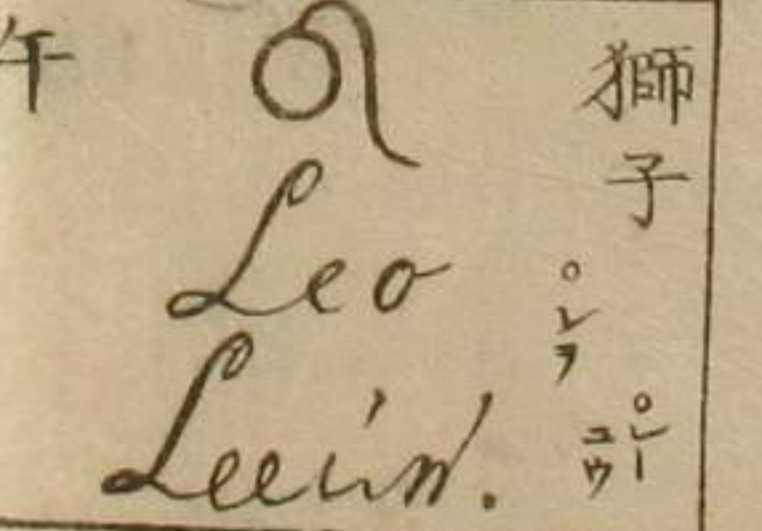 獅子
♌
Leo
゜レヲ
Leeuw.
゜レー
ユウ
午